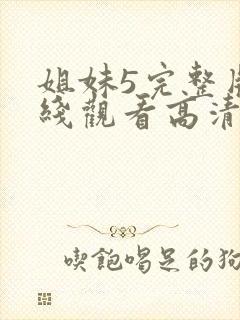 姐妹5完整
綫觀看高清
喫飽喝足的狗